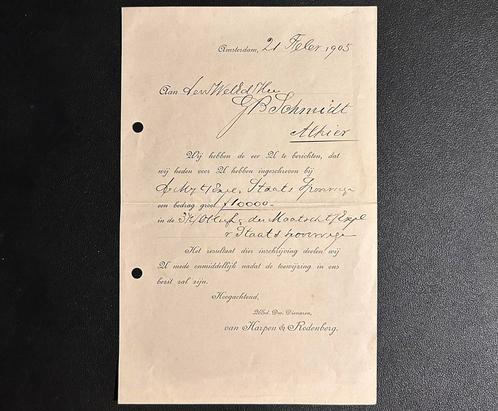 Amsterdam, 21 Febr 1905
Aan den WelEd Heer
G B Schmidt
Alhier
Wij hebben de eer U te berichten, dat
wij heden voor U hebben ingeschreven bij
de My t/ Expl. Staats Spoorwege
een bedrag groot f 10000.-
in de 3½ % der Maatsch t/ Expl
v Staatsspoorwege
Het resultaat dier inschrijving deelen wij
U mede onmiddellijk nadat de toewijzing in ons
bezit zal zijn.
Hoogachtend,
UEd. Dw. Dienaren,
van Harpen & Rodenberg.